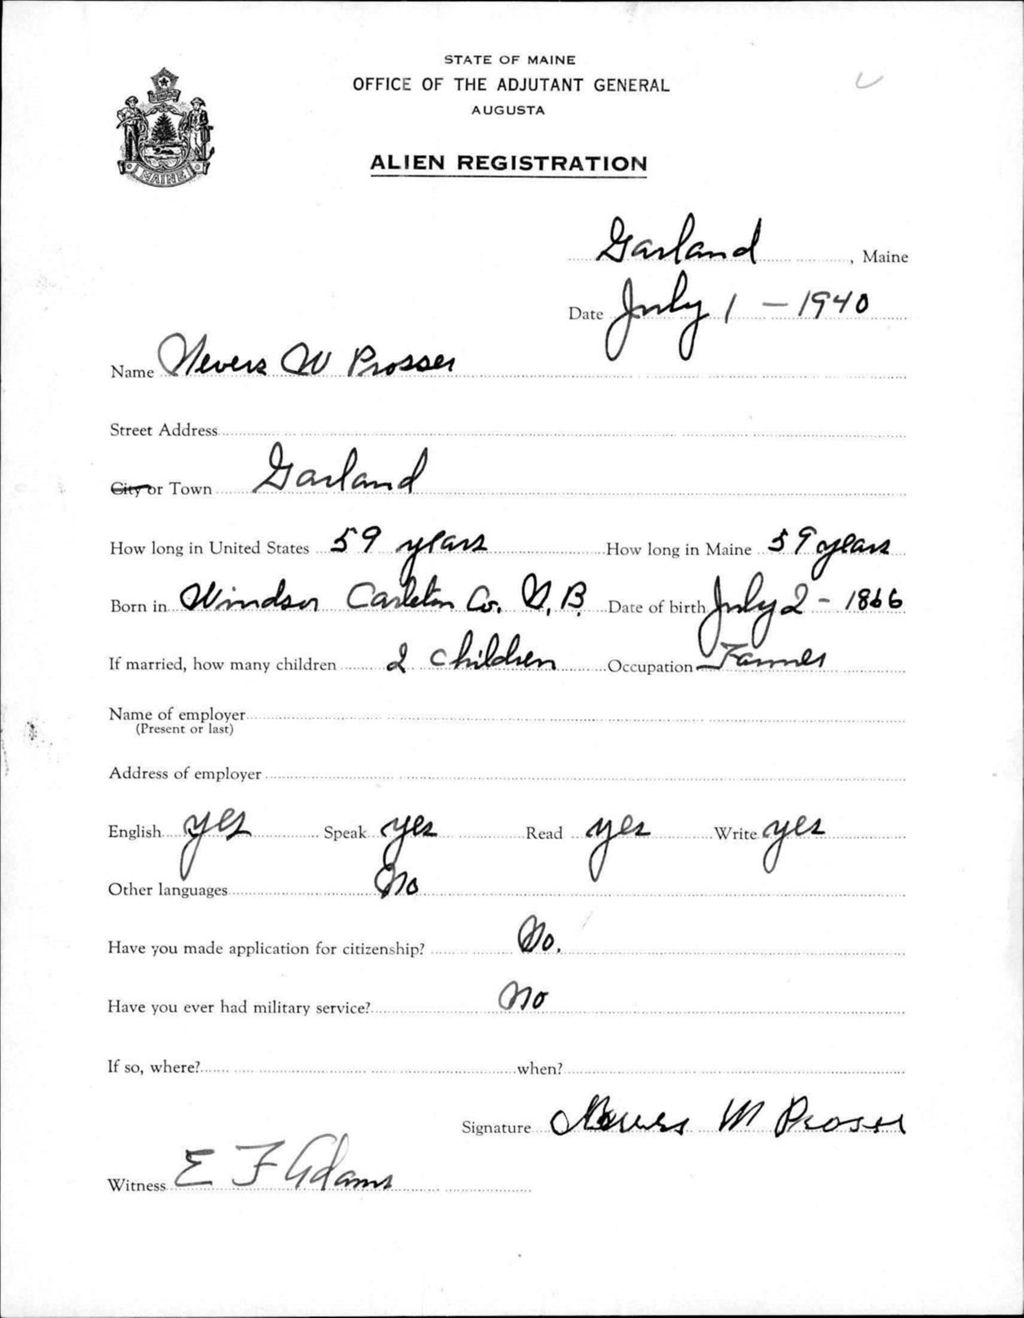 STATE OF MAINE
OFFICE OF THE ADJUTANT GENERAL
AUGUSTA
ALIEN REGISTRATION
MAINE
Garland, Maine
Date July 1 - 1940
Name Nevers W Prosser
Street Address
City or Town Garland
How long in United States 59 years How long in Maine 59 years
Born in Windsor Carleton Co. N.B. Date of birth July 2 - 1866
If married, how many children 2 children Occupation Farmer
Name of employer
(Present or last)
Address of employer
English yes Speak yes Read yes Write yes
Other languages No
Have you made application for citizenship? No.
Have you ever had military service? No
If so, where? when?
Signature Nevers W Prosser
Witness E F Adams